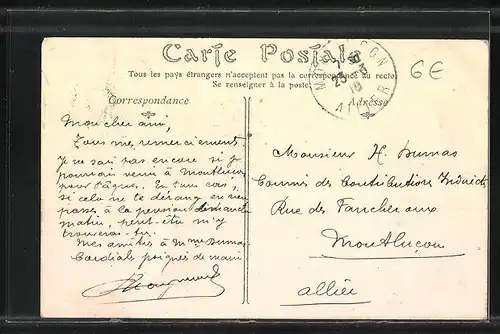 Carte Postale
Tous les pays étrangers n'acceptent pas la correspondance au recto
Se renseigner à la poste
MONTLUÇON
ALLIER
6€
Correspondance
Adresse
Mon cher ami,
Tous mes remerciements
Je ne sais pas encore si je
pourrais venir à Montluçon
pour Pâques. En tous cas,
si cela ne te dérange en rien
passes à la pension dimanche
matin, peut-être m'y
trouveras-tu.
Mes amitiés à Mme Dumas
Cordiale poignée de main
Monsieur H. Dumas
Commis des Contributions Indirectes
Rue des Faucheraux
Montluçon
Allier